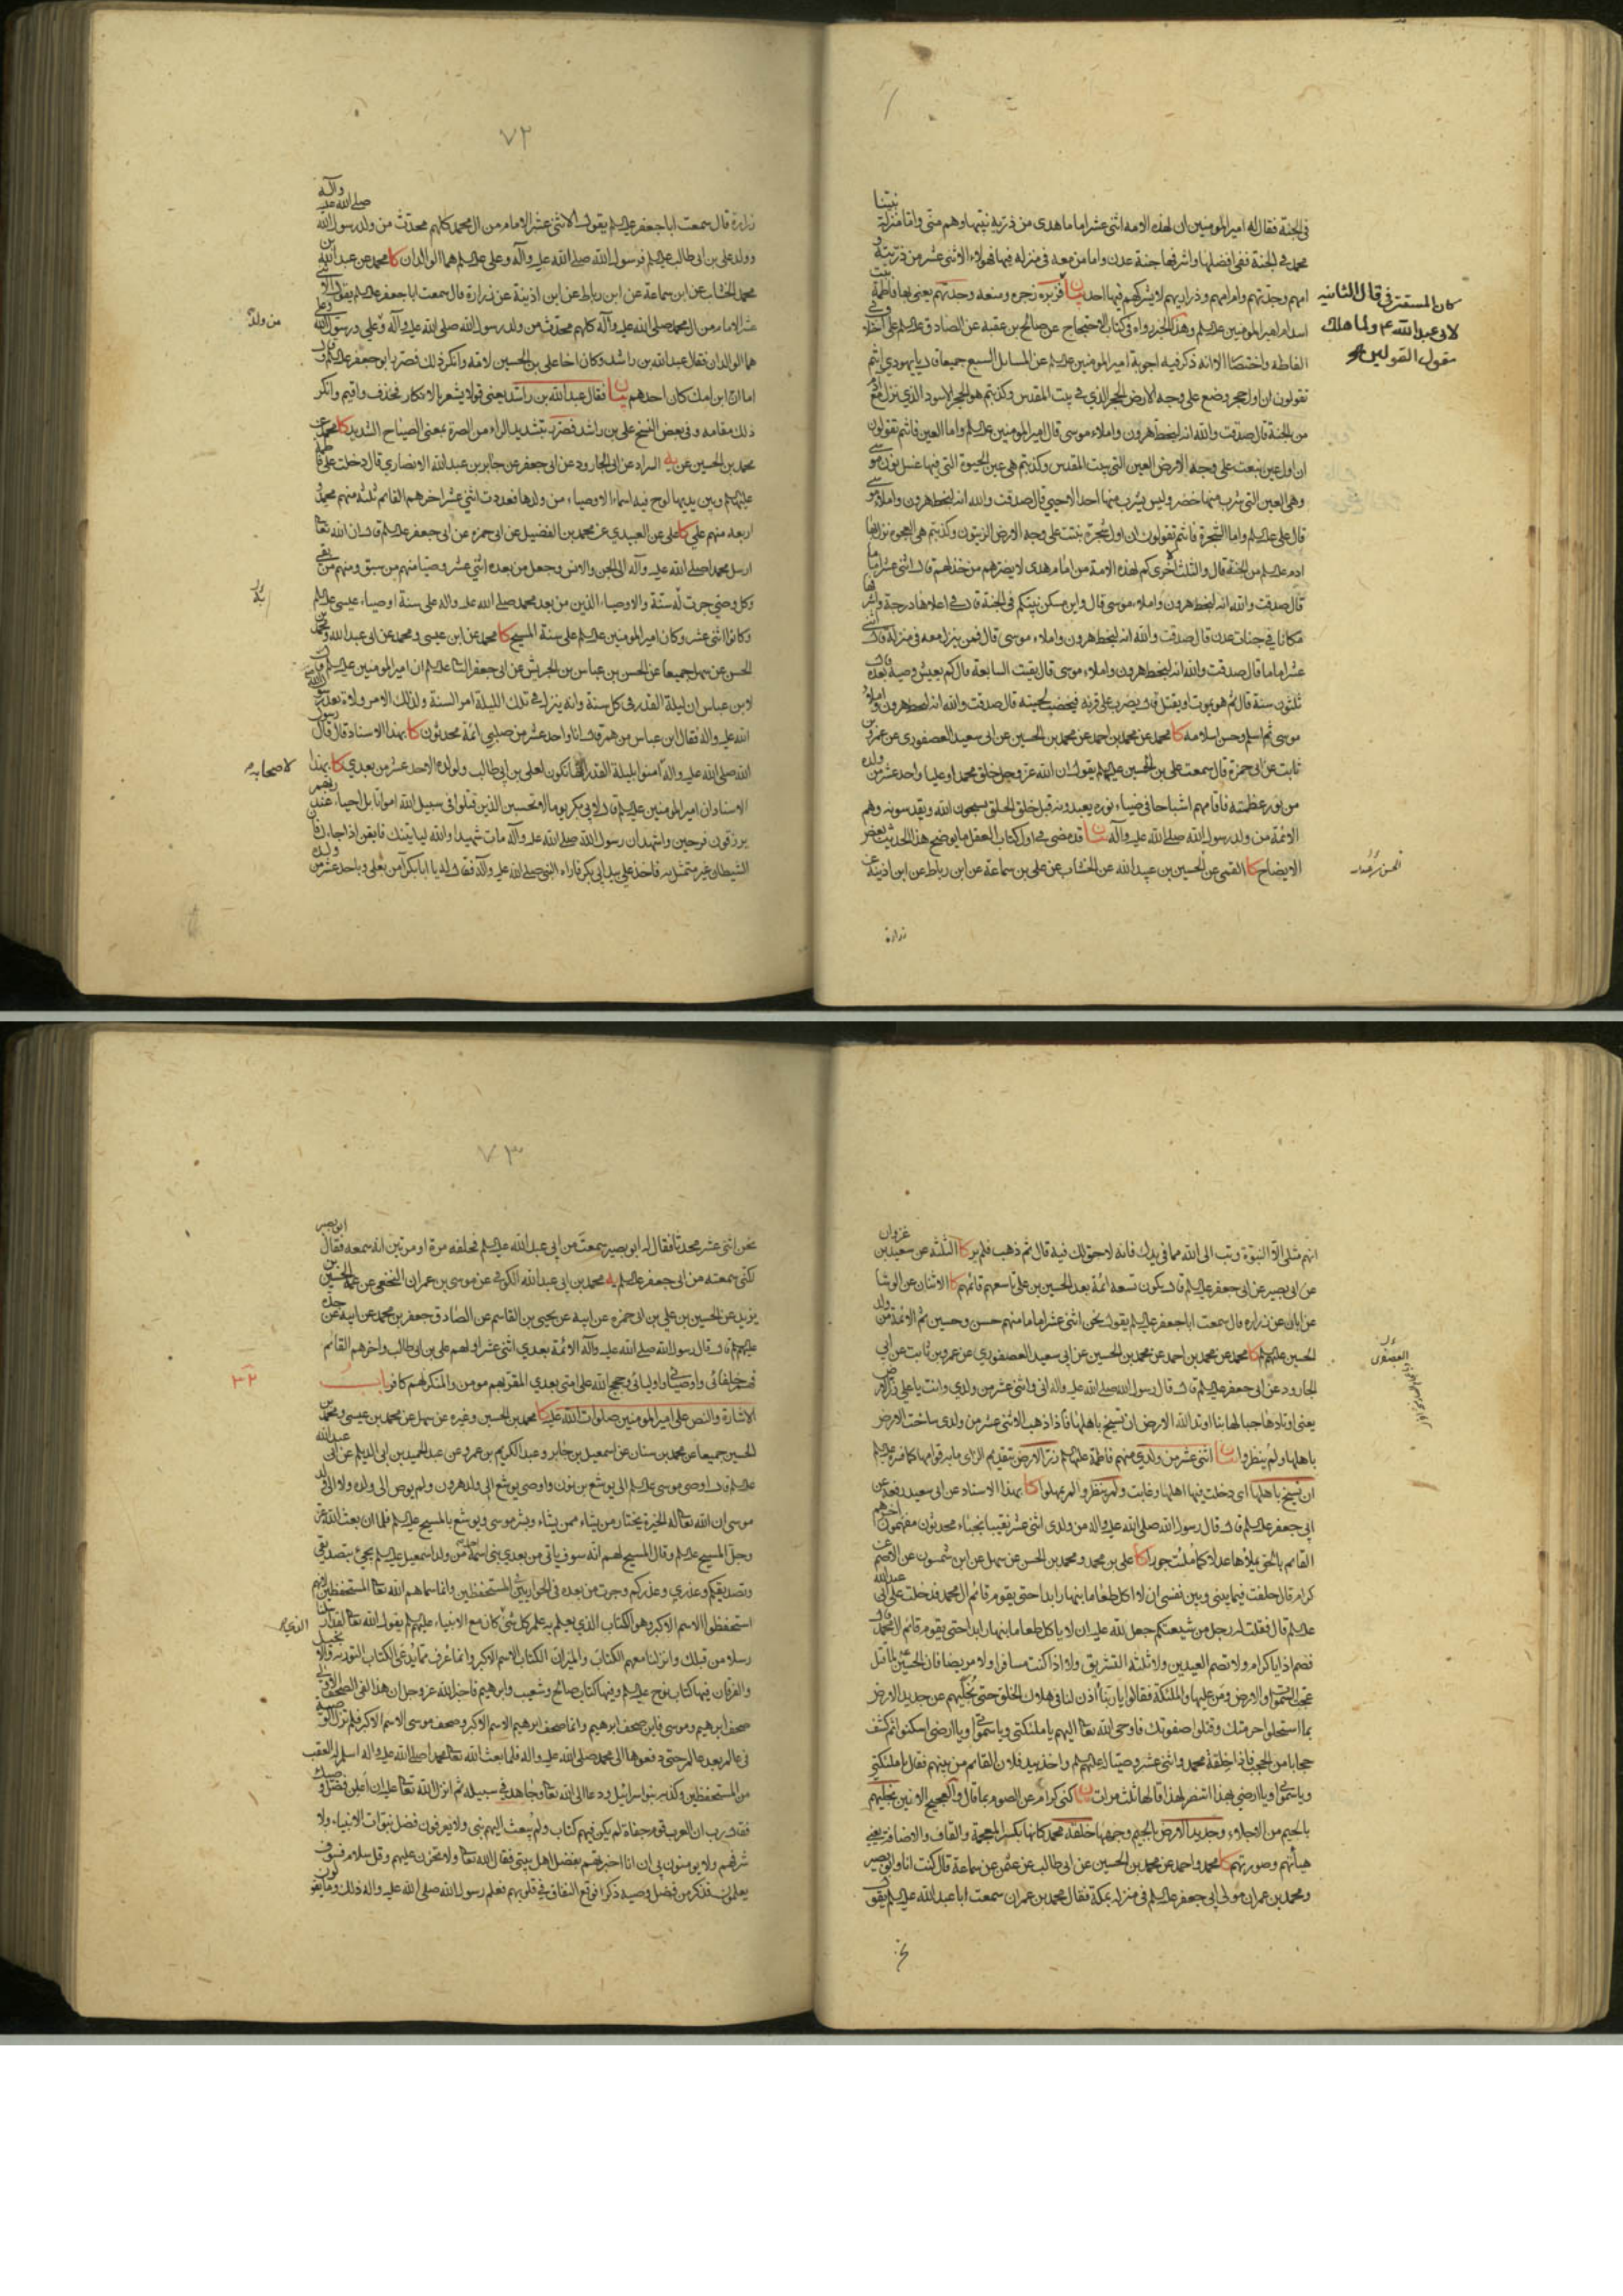 في الجنة فقال له امير المومنين ان لهذه الامه اثنى عشر اماما هدى من ذرية نبيها وهم منى واما منزلة نبينا
محمد في الجنة ففى افضلها واشرفها جنة عدن واما من معه فى منزله فيها فهولاء الاثنى عشر من ذريته و
امهم وجدتهم وام امهم وذراريهم لا يشركهم فيها احد بيان فزبره زجره ومنعه وجدتهم يعنى بها فاطمة بنت
اسد ام امير المومنين عليه السلم وهذا الخبر رواه فى كتاب الاحتجاج عن صالح بن عقبة عن الصادق عليه السلم على اختلاف فى
الفاظه واختصار الا انه ذكر فيه اجوبة امير المومنين عليه السلم عن المسايل السبع جميعا قال يا يهودي انتم
تقولون ان اول حجر وضع على وجه الارض الحجر الذي في بيت المقدس وكذبتم هو الحجر الاسود الذي نزل مع ادم
من الجنة قال صدقت والله انه لبخط هرون واملاء موسى قال امير المومنين عليه السلم واما العين فانتم تقولون
ان اول عين نبعت على وجه الارض العين التي ببيت المقدس وكذبتم هى عين الحيوة التي فيها غسل يوشع بن نون
وهى العين التي شرب منها خضر وليس يشرب منها احد الا حيي قال صدقت والله انه لبخط هرون واملاء موسى
قال على عليه السلم واما الشجرة فانتم تقولون ان اول شجرة نبتت على وجه الارض الزيتون وكذبتم هى العجوه نزل بها
ادم عليه السلم من الجنة قال والثلث الاخرى كم لهذه الامة من امام هدى لا يضرهم من خذلهم قال اثنى عشر اماما
قال صدقت والله انه لبخط هرون واملاء موسى قال واين مسكن نبيكم فى الجنة قال في اعلاها درجة واشرفها
مكانا في جنات عدن قال صدقت والله انه لبخط هرون واملاء موسى قال فمن ينزل معه فى منزله قال اثنى
عشر اماما قال صدقت والله انه لبخط هرون واملاء موسى قال بقيت السابعة قال كم يعيش وصيه بعده قال
ثلثون سنة قال ثم هو يموت او يقتل قال يضرب على قرنه فيخضب لحيته قال صدقت والله انه لبخط هرون واملاء
موسى ثم اسلم وحسن اسلامه كا محمد عن محمد بن احمد عن محمد بن الحسين عن ابى سعيد العصفورى عن عمرو بن
ثابت عن ابى حمزة قال سمعت على بن الحسين عليهما السلم يقول ان الله عز وجل خلق محمدا وعليا واحد عشر من ولده
من نور عظمته فاقامهم اشباحا فى ضياء نوره يعبدونه قبل خلق الخلق يسبحون الله ويقدسونه وهم
الائمة من ولد رسول الله صلى الله عليه وآله بيان قد مضى في اول كتاب العقل ما يوضح هذا الحديث بعض
الايضاح كا القمى عن الحسين بن عبيد الله عن الخشاب عن على بن سماعة عن ابن رباط عن ابن اذينة عن
زرارة
كان المستتر فى قال الثانيه
لابى عبد الله ع ولما هلك
مقول القولين
٧٢
زرارة قال سمعت ابا جعفر عليه السلم يقول الاثنى عشر الامام من ال محمد كلهم محدث من ولد رسول الله صلى الله عليه وآله
وولد على بن ابى طالب عليه السلم فرسول الله صلى الله عليه وآله وعلى عليه السلم هما الوالدان كا محمد عن عبد الله بن
محمد الخشاب عن ابن سماعة عن ابن رباط عن ابن اذينة عن زرارة قال سمعت ابا جعفر عليه السلم يقول الاثنى
عشر الامام من ال محمد صلى الله عليه وآله كلهم محدث من ولد رسول الله صلى الله عليه وآله وعلي ورسول الله وعلى
هما الوالدان فقال عبد الله بن راشد وكان اخا على بن الحسين لامه وانكر ذلك فصرر ابو جعفر عليه السلم وقال
اما ان ابن امك كان احدهم بيان فقال عبد الله بن راشد يعنى قولا يشعر بالانكار فحذف واقيم وانكر
ذلك مقامه وفى بعض النسخ على بن راشد فصرر بتشديد الراء من الصرة بمعنى الصياح الشديد كا محمد عن
محمد بن الحسين عن يه السراد عن ابى الجارود عن ابى جعفر عن جابر بن عبد الله الانصاري قال دخلت على فاطمة
عليها السلم وبين يديها لوح فيه اسماء الاوصياء من ولدها فعددت اثنى عشر اخرهم القائم ثلثه منهم محمد و
اربعه منهم على كا على عن العبيدي عن محمد بن الفضيل عن ابى حمزه عن ابى جعفر عليه السلم قال ان الله تعالى
ارسل محمدا صلى الله عليه وآله الى الجن والانس وجعل من بعده اثنى عشر وصيا منهم من سبق ومنهم من بقى
وكل وصى جرت له سنة والاوصياء الذين من بعد محمد صلى الله عليه واله على سنة اوصياء عيسى عليه السلم
وكانوا اثنى عشر وكان امير المومنين عليه السلم على سنة المسيح كا محمد عن ابن عيسى ومحمد عن ابى عبد الله ومحمد بن
الحسن عن سهل جميعا عن الحسن بن عباس بن الحريش عن ابى جعفر الثانى عليه السلم ان امير المومنين عليه السلم قال
لابن عباس ان ليلة القدر فى كل سنة وانه ينزل في تلك الليلة امر السنة ولذلك الامر ولاة بعد رسول الله صلى
الله عليه واله فقال ابن عباس من هم قال انا واحد عشر من صلبي ائمة محدثون كا بهذا الاسناد قال قال رسول
الله صلى الله عليه واله لاصحابه امنوا بليلة القدر انها تكون لعلى بن ابى طالب ولولده الاحد عشر من بعدي كا بهذا
الاسناد ان امير المومنين عليه السلم قال لابى بكر يوما لا تحسبن الذين قتلوا فى سبيل الله امواتا بل احياء عند ربهم
يرزقون فرحين واشهد ان رسول الله صلى الله عليه وآله مات شهيدا والله لياتينك فايقن اذا جاءك فان
الشيطان غير متمثل به فاخذ على بيد ابى بكر فاراه النبي صلى الله عليه وآله فقال له يا ابا بكر آمن بعلى وباحد عشر من ولده
من ولد
لاصحابه
انهم مثلى الا النبوة وتب الى الله مما فى يدك فانه لا حق لك فيه قال ثم ذهب فلم ير كا الثلثه عن سعيد بن غزوان
عن ابى بصير عن ابى جعفر عليه السلم قال يكون تسعه ائمة بعد الحسين بن على تاسعهم قائمهم كا الاثنان عن الوشا
عن ابان عن زراره قال سمعت ابا جعفر عليه السلم يقول نحن اثنى عشر اماما منهم حسن وحسين ثم الائمة من ولد
الحسين عليهم السلم كا محمد عن محمد بن احمد عن محمد بن الحسين عن ابى سعيد العصفوري عن عمرو بن ثابت عن ابى
الجارود عن ابى جعفر عليه السلم قال قال رسول الله صلى الله عليه واله انى واثنى عشر من ولدي وانت يا على زر الارض
يعنى اوتادها جبالها بنا اوتد الله الارض ان تسيخ باهلها فاذا ذهب الاثنى عشر من ولدى ساخت الارض
باهلها ولم ينظروا بيان اثنى عشر من ولدي منهم فاطمة عليها السلم زر الارض بتقديم الزاى ما به قوامها كما فسره عليه السلم
ان تسيخ باهلها اى دخلت فيها اهلها وغابت ولم ينتظروا لم يمهلوا كا بهذا الاسناد عن ابى سعيد رفعه عن
ابى جعفر عليه السلم قال قال رسول الله صلى الله عليه واله من ولدى اثنى عشر نقيبا نجباء محدثون مفهمون اخرهم
القائم بالحق يملاها عدلا كما ملئت جورا كا على بن محمد ومحمد بن الحسن عن سهل عن ابن شمون عن الاصم عن
كرام قال حلفت فيما بينى وبين نفسى ان لا اكل طعاما بنهار ابدا حتى يقوم قائم ال محمد فدخلت على ابى عبد الله
عليه السلم قال فقلت له رجل من شيعتكم جعل لله عليه ان لا ياكل طعاما بنهار ابدا حتى يقوم قائم ال محمد قال
فصم اذا يا كرام ولا تصم العيدين ولا ثلثة التشريق ولا اذا كنت مسافرا ولا مريضا فان الحسين لما قتل
عجت السموات والارض ومن عليها والملئكة فقالوا يا ربنا ائذن لنا فى هلاك الخلق حتى نجليهم عن جديد الارض
بما استحلوا حرمتك وقتلوا صفوتك فاوحى الله تعالى اليهم يا ملئكتى ويا سمواتى ويا ارضى اسكنوا ثم كشف
حجابا من الحجب فاذا خلفه محمد واثنى عشر وصيا له عليهم السلم واخذ بيد فلان القائم من بينهم فقال يا ملئكتى
ويا سمواتى ويا ارضى بهذا انتصر لهذا قالها ثلث مرات بيان كنى كرام عن الصوم بما قال والعجيج الانين نجليهم
بالجيم من الاجلاء وجديد الارض الجيم وجهها خلقه محمد كانها بكسر المعجمة والقاف والاضافة يعنى
هيأتهم وصورتهم كا محمد واحمد عن محمد بن الحسين عن ابى طالب عن عثمن عن سماعة قال كنت انا وابو بصير
ومحمد بن عمران مولى ابى جعفر عليه السلم فى منزله بمكة فقال محمد بن عمران سمعت ابا عبد الله عليه السلم يقول
نحن
٧٣
نحن اثنى عشر محدثا فقال له ابو بصير سمعت من ابى عبد الله عليه السلم فحلفه مرة او مرتين انه سمعه فقال ابو بصير
لكنى سمعته من ابى جعفر عليه السلم يه محمد بن ابى عبد الله الكوفى عن موسى بن عمران النخعى عن عمه الحسين بن
يزيد عن الحسين بن على بن ابى حمزه عن ابيه عن يحيى بن القاسم عن الصادق جعفر بن محمد عن ابيه عن جده
عليهم السلم قال قال رسول الله صلى الله عليه وآله الائمة بعدي اثنى عشر اولهم على بن ابى طالب واخرهم القائم
فهم خلفائى واوصيائى واوليائى وحجج الله على امتى بعدي المقر بهم مومن والمنكر لهم كافر باب
الاشارة والنص على امير المومنين صلوات الله عليه كا محمد بن الحسين وغيره عن سهل عن محمد بن عيسى ومحمد بن
الحسين جميعا عن محمد بن سنان عن اسمعيل بن جابر وعبد الكريم بن عمرو عن عبد الحميد بن ابى الديلم عن ابى عبد الله
عليه السلم قال اوصى موسى عليه السلم الى يوشع بن نون واوصى يوشع الى ولد هرون ولم يوص الى ولده ولا الى ولد
موسى ان الله تعالى له الخيرة يختار من يشاء ممن يشاء وبشر موسى ويوشع بالمسيح عليه السلم فلما ان بعث الله عز
وجل المسيح عليه السلم وقال المسيح لهم انه سوف ياتى من بعدي نبى اسمه احمد من ولد اسمعيل عليه السلم يجئ بتصديقى
وتصديقكم وعذري وعذركم وجرت من بعده فى الحواريين فى المستحفظين وانما سماهم الله تعالى المستحفظين لانهم
استحفظوا الاسم الاكبر وهو الكتاب الذي يعلم به علم كل شئ كان مع الانبياء عليهم السلم يقول الله تعالى لقد ارسلنا
رسلا من قبلك وانزلنا معهم الكتاب والميزان الكتاب الاسم الاكبر وانما عرف مما يدعى الكتاب التوريه والانجيل
والفرقان فيها كتاب نوح عليه السلم وفيها كتاب صالح وشعيب وابرهيم فاخبر الله عز وجل ان هذا لفى الصحف الاولى
صحف ابرهيم وموسى فاين صحف ابرهيم وانما صحف ابرهيم الاسم الاكبر وصحف موسى الاسم الاكبر فلم تزل الوصية
فى عالم بعد عالم حتى دفعوها الى محمد صلى الله عليه واله فلما بعث الله تعالى محمدا صلى الله عليه واله اسلم له العقب
من المستحفظين وكذبه بنو اسرائيل ودعا الى الله تعالى وجاهد فى سبيله ثم انزل الله تعالى عليه ان اعلن فضل وصيك
فقال رب ان العرب قوم جفاة لم يكن فيهم كتاب ولم يبعث اليهم نبى ولا يعرفون فضل نبوات الانبياء ولا
شرفهم ولا يومنون بى ان انا اخبرتهم بفضل اهل بيتى فقال الله تعالى ولا تحزن عليهم وقل سلام فسوف
يعلمون فذكر من فضل وصيه ذكرا فوقع النفاق فى قلوبهم فعلم رسول الله صلى الله عليه واله ذلك وما يقولون